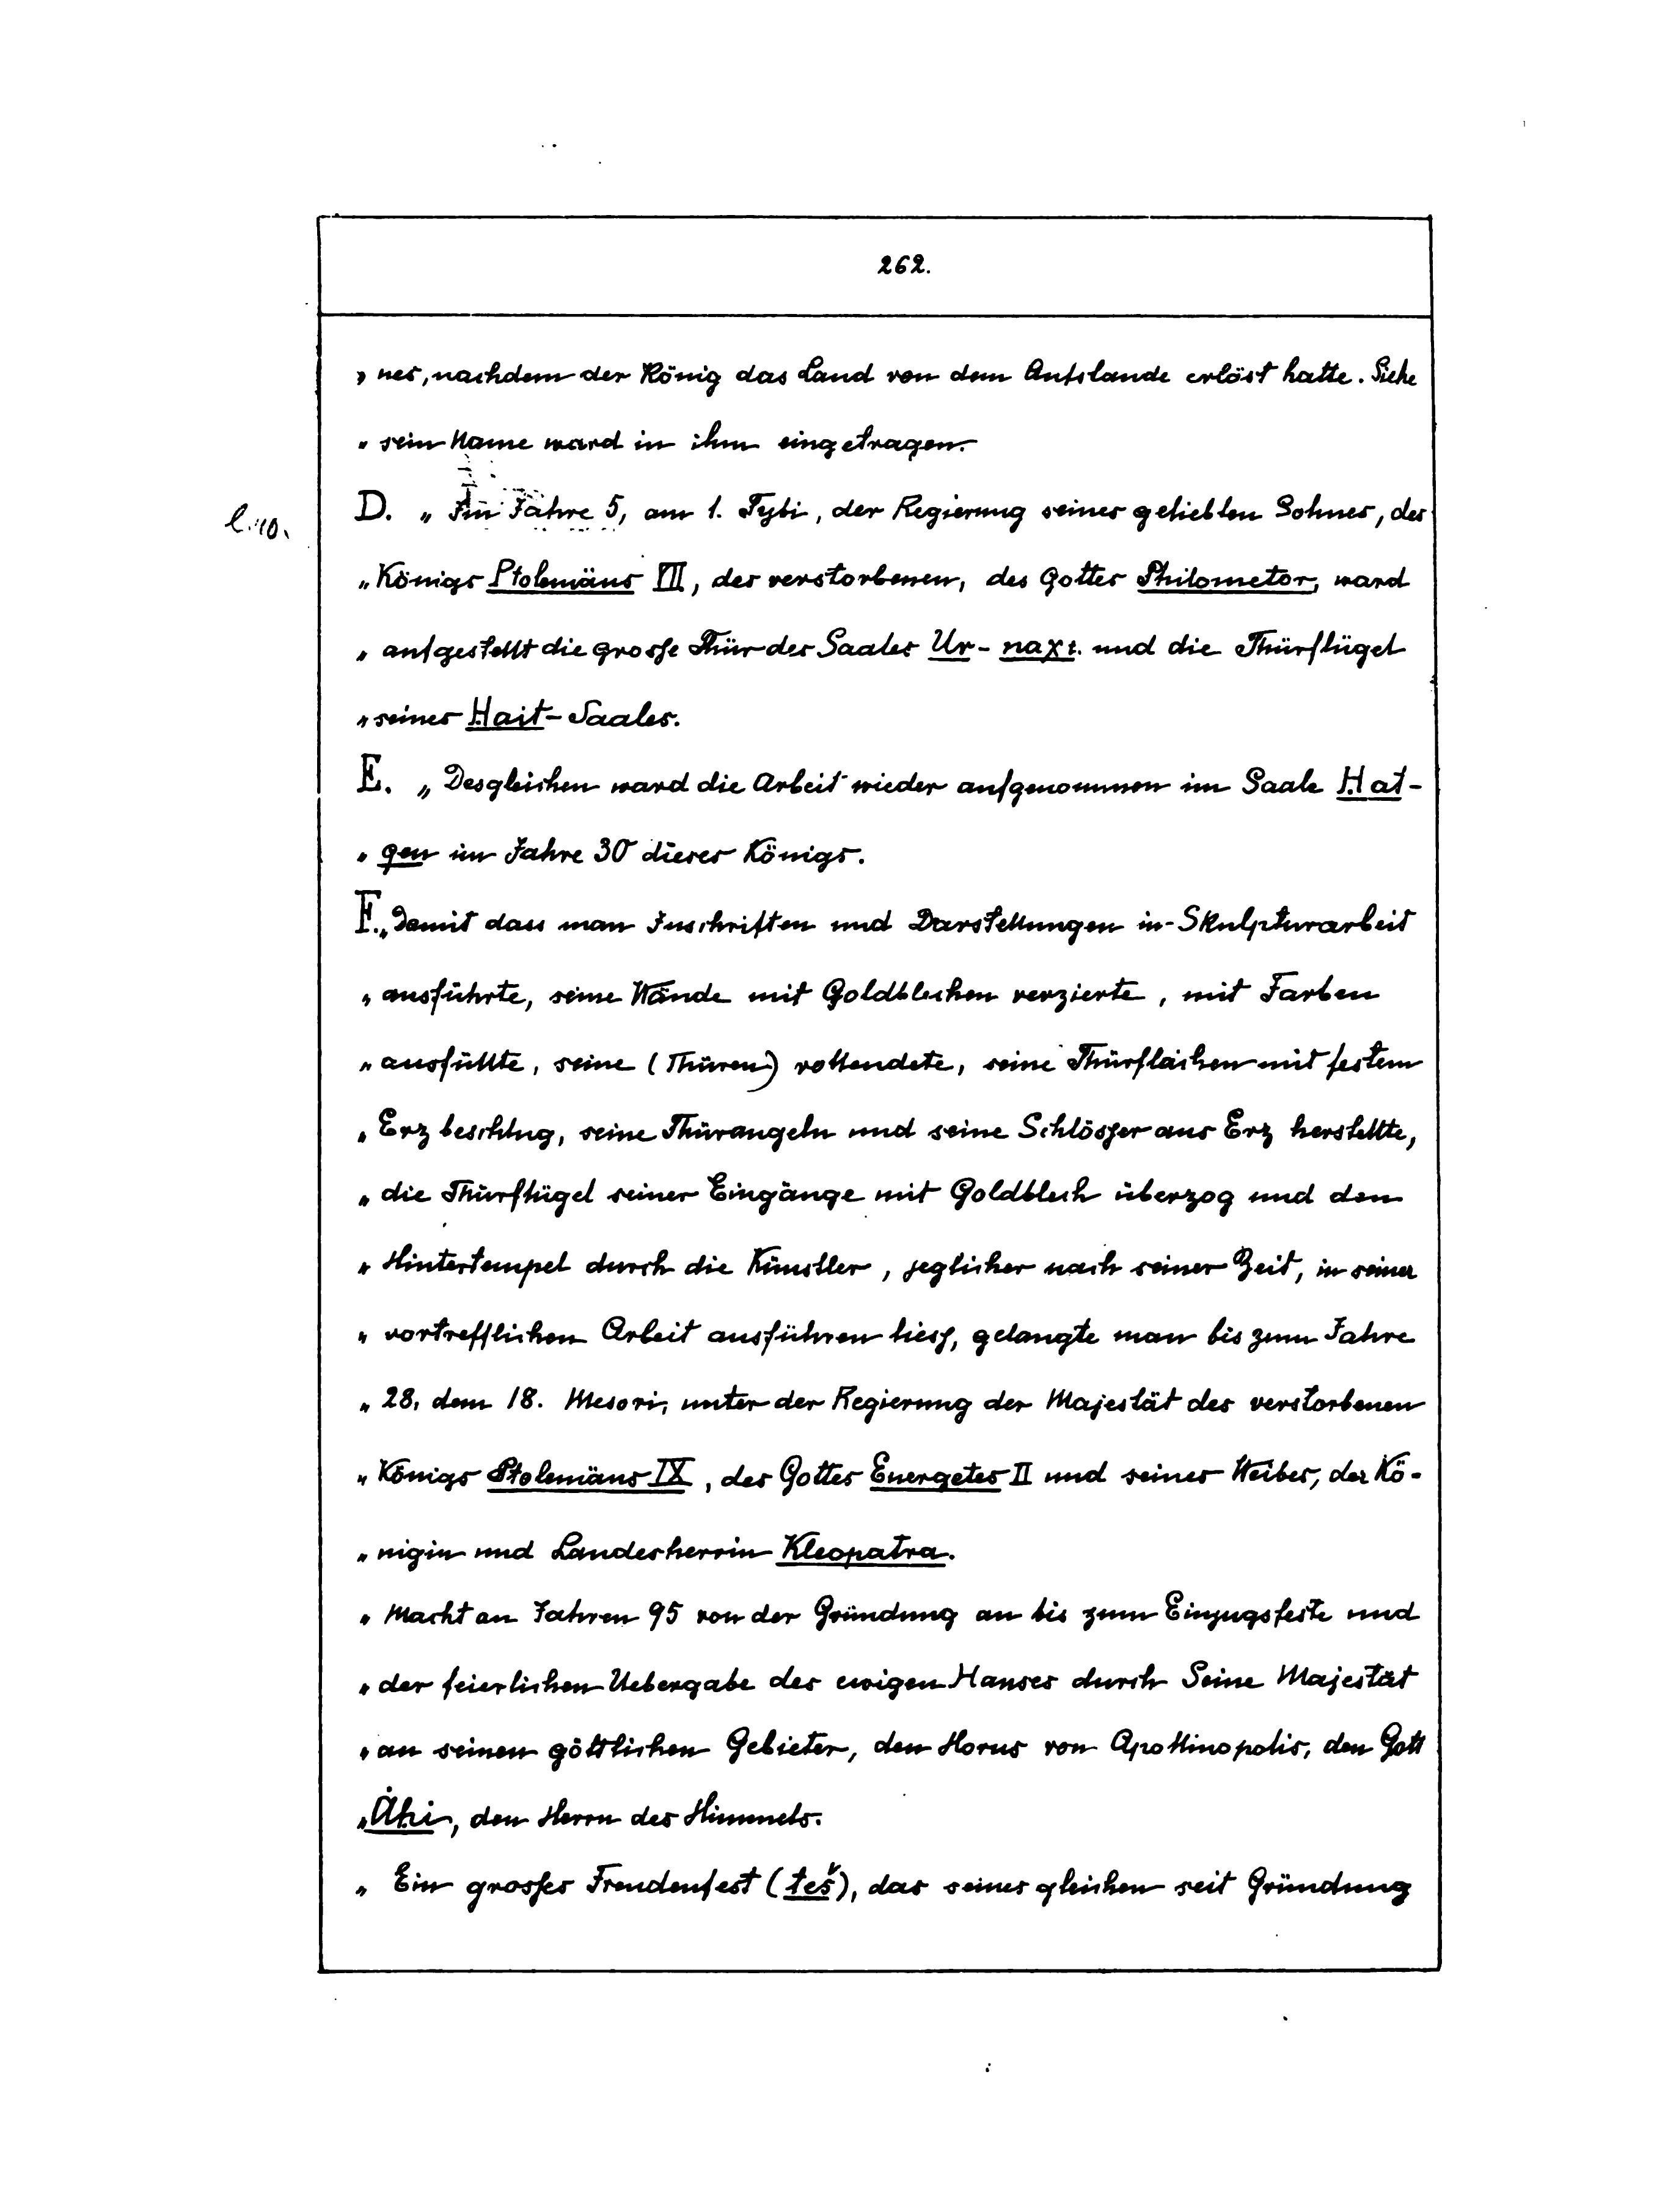 262.
„ nes, nachdem der König das Land von dem Aufstande erlöst hatte. Siehe
„ sein Name ward in ihm eingetragen.
l. 10.
D. „ Im Jahre 5, am 1. Tybi, der Regierung seines geliebten Sohnes, des
„ Königs Ptolemäus VII, des verstorbenen, des Gottes Philometor, ward
„ aufgestellt die grosse Thür des Saales Ur-naχt. und die Thürflügel
„ seines Hait-Saales.
E. „ Desgleichen ward die Arbeit wieder aufgenommen im Saale Hat-
„ qen im Jahre 30 dieses Königs.
F. „ Damit dass man Inschriften und Darstellungen in Skulpturarbeit
„ ausführte, seine Wände mit Goldblechen verzierte, mit Farben
„ ausfüllte, seine (Thüren) vollendete, seine Thürflächen mit festem
„ Erz beschlug, seine Thürangeln und seine Schlösser aus Erz herstellte,
„ die Thürflügel seiner Eingänge mit Goldblech überzog und den
„ Hintertempel durch die Künstler, jeglicher nach seiner Zeit, in seiner
„ vortrefflichen Arbeit ausführen liess, gelangte man bis zum Jahre
„ 28, dem 18. Mesori, unter der Regierung der Majestät des verstorbenen
„ Königs Ptolemäus IX, des Gottes Euergetes II und seines Weibes, der Kö-
„ nigin und Landesherrin Kleopatra.
„ Macht an Jahren 95 von der Gründung an bis zum Einzugsfeste und
„ der feierlichen Uebergabe des ewigen Hauses durch Seine Majestät
„ an seinen göttlichen Gebieter, den Horus von Apollinopolis, den Gott
„ Åḥi, den Herrn des Himmels.
„ Ein grosses Freudenfest (teš), das seines gleichen seit Gründung